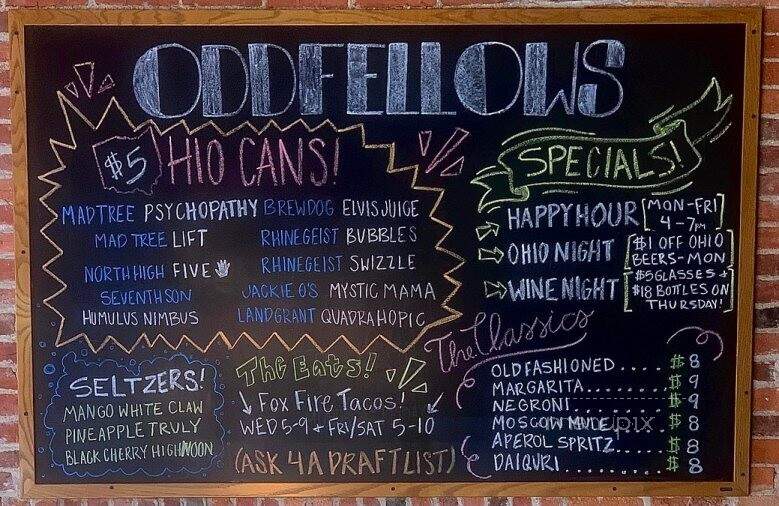 ODDFELLOWS
$5 HIO CANS!
MADTREE PSYCHOPATHY
MAD TREE LIFT
NORTH HIGH FIVE
SEVENTH SON
HUMULUS NIMBUS
BREWDOG ELVIS JUICE
RHINEGEIST BUBBLES
RHINEGEIST SWIZZLE
JACKIE O'S MYSTIC MAMA
LANDGRANT QUADRAHOPIC
SPECIALS!
HAPPY HOUR [MON-FRI
4-7PM]
OHIO NIGHT [$1 OFF OHIO
BEERS-MON]
WINE NIGHT [$5 GLASSES +
$18 BOTTLES ON
THURSDAY!]
SELTZERS!
MANGO WHITE CLAW
PINEAPPLE TRULY
BLACK CHERRY HIGH NOON
The Eats!
Fox Fire Tacos!
WED 5-9 + FRI/SAT 5-10
(ASK 4 A DRAFT LIST)
The Classics
OLD FASHIONED.... $8
MARGARITA........ $9
NEGRONI.......... $9
MOSCOW MULE...... $8
APEROL SPRITZ.... $8
DAIQURI.......... $8